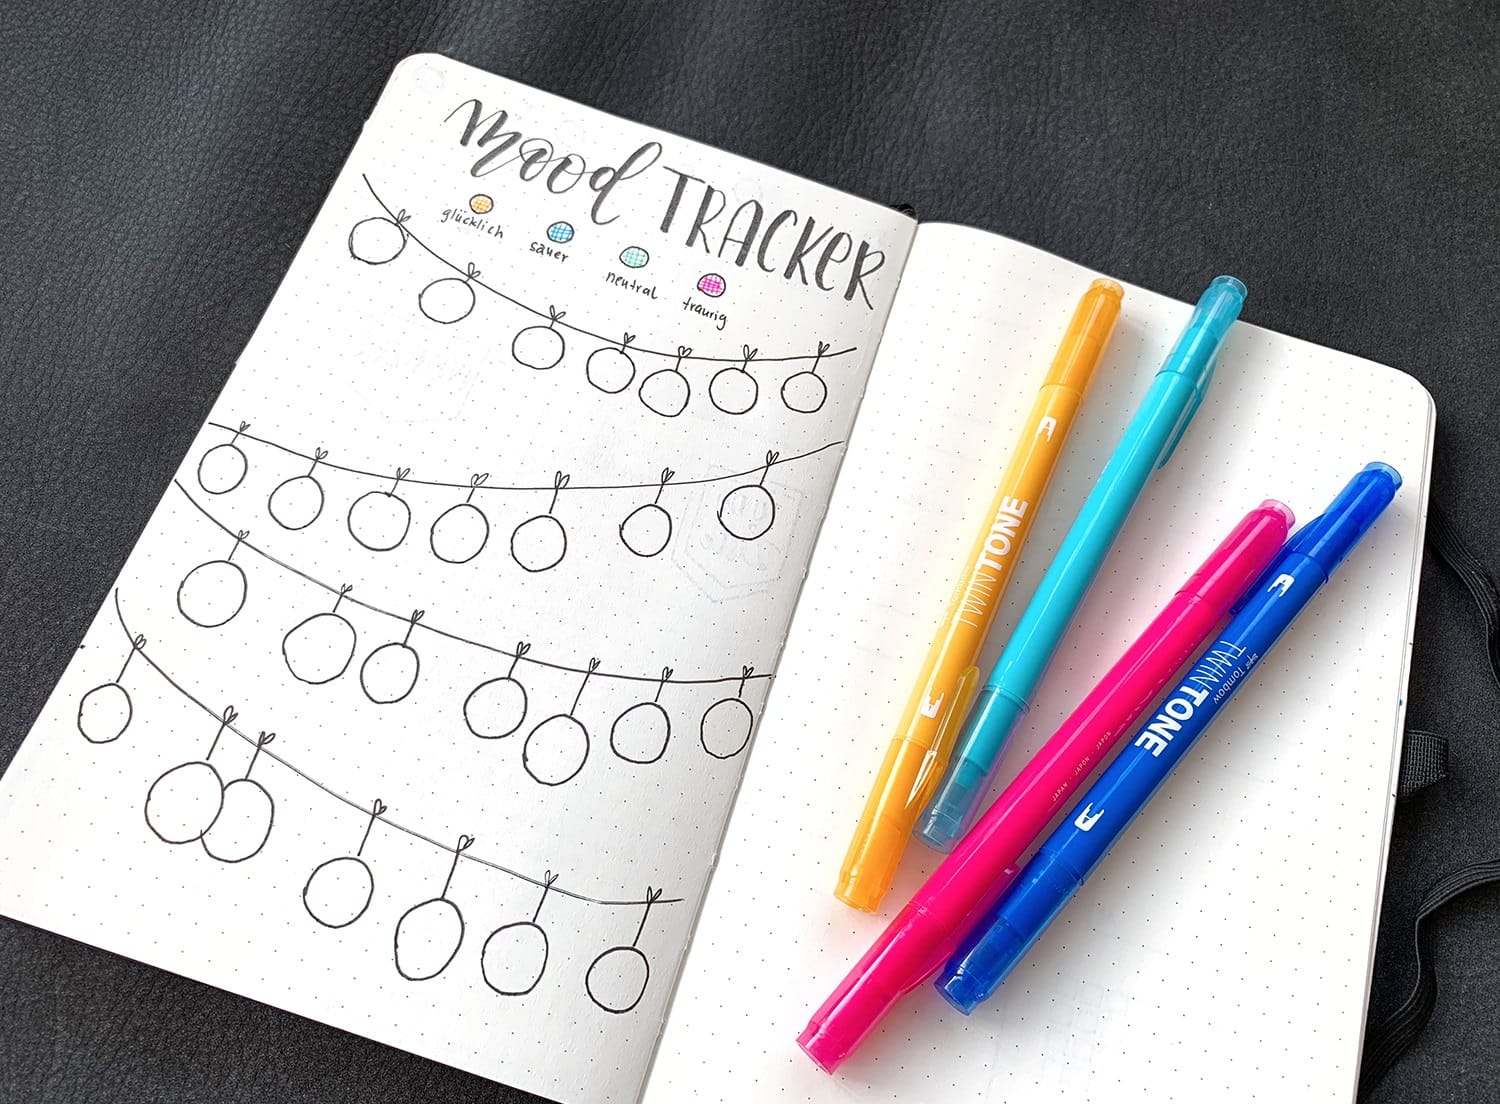 mood TRACKER
glücklich
sauer
neutral
traurig
A
TWINTONE
A
Tombow
TWINTONE
JAPAN · JAPON · JAPÓN